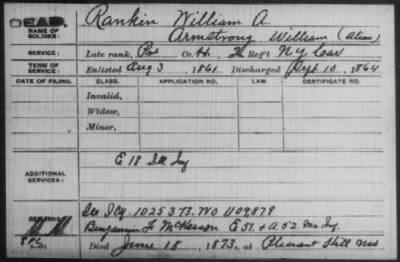 DEAD.
NAME OF SOLDIER: Rankin William A.
Armstrong William (Alias)
SERVICE: Late rank, Pvt Co. H, Reg't N.Y. Cav
TERM OF SERVICE: Enlisted Aug 3, 1861 Discharged Sept 10, 1864
DATE OF FILING. CLASS. APPLICATION NO. LAW. CERTIFICATE NO.
Invalid,
Widow,
Minor,
ADDITIONAL SERVICES: E 18 Ill Inf
REMARKS: See Icg. 1025373. WO 1109879
Benjamin F. McKesson E 51. + A 52. Mo Inf.
Died June 18, 1873, at Pleasant Hill Mo